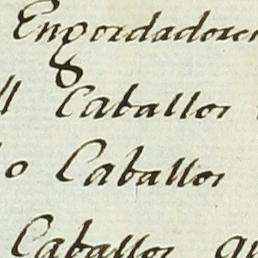 Engordadores
ll Caballos
o Caballos
Caballos qu